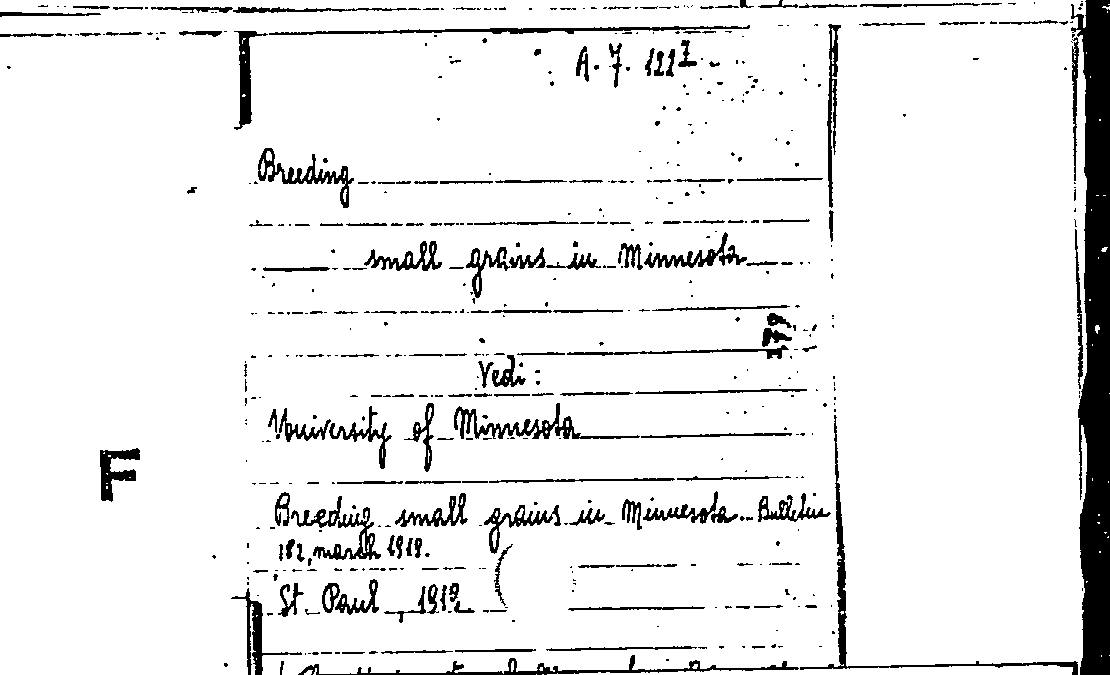 A. 7. 122
Breeding
small grains in Minnesota
179
Vedi:
University of Minnesota
F
Breeding small grains in Minnesota. Bulletin
182, march 1919.
St Paul, 1919